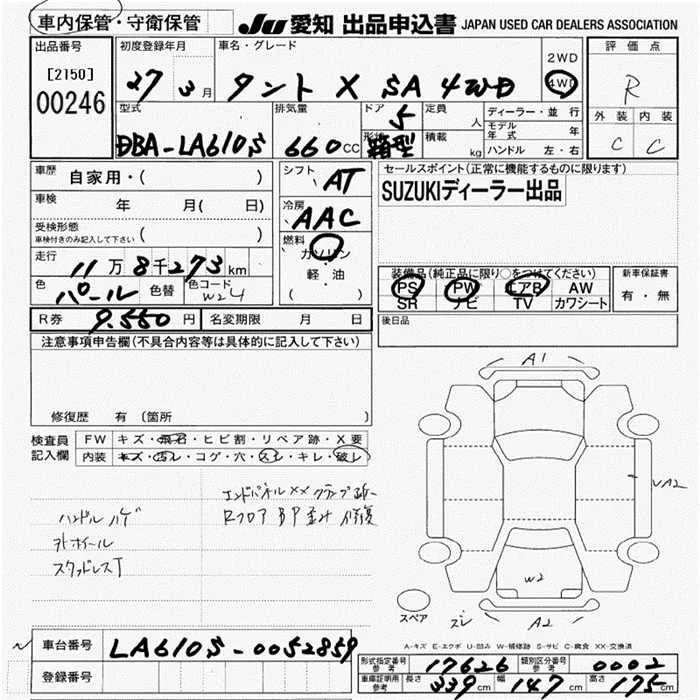 車内保管・守衛保管
JU 愛知 出品申込書 JAPAN USED CAR DEALERS ASSOCIATION
出品番号
[2150]
00246
初度登録年月
27 3月
車名・グレード
タント X SA 4WD
2WD
4WD
評価点
R
外装 内装
C C
型式
DBA-LA610S
排気量
660cc
ドア
5
形状
箱型
定員
人
積載
kg
ディーラー・並行
モデル年式 年
ハンドル 左・右
車歴
自家用・( )
車検
年 月( 日)
受検形態
車検付きのみ記入して下さい ( )
走行
11万8千273km
色
パール
色替
色コード
W24
シフト
AT
冷房
AAC
燃料
ガソリン
軽・油
( )
セールスポイント(正常に機能するものに限ります)
SUZUKIディーラー出品
装備品(純正品に限り○をつけてください)
PS PW エアB AW
SR ナビ TV カワシート
新車保証書
有・無
R券 9.550円
名変期限 月 日
後日品
注意事項申告欄(不具合内容等は具体的に記入して下さい)
修復歴 有(箇所 )
検査員
記入欄
FW キズ・飛石・ヒビ割・リペア跡・X要
内装 キズ・汚レ・コゲ・穴・スレ・キレ・破レ
エンドパネルXX クランプ跡
ハンドルハゲ
Rフロア BP歪み 修復
ヲトホイール
スタッドレスT
A1
UA2
W2
スペア
スレ
A2
A-キズ E-エクボ U-凹み W-補修跡 S-サビ C-腐食 XX-交換済
車台番号 LA610S-0052859
登録番号
形式指定番号 参考 17626
類別区分番号 参考 0002
車庫証明用 参考 長さ 339cm 幅 147cm 高さ 175cm